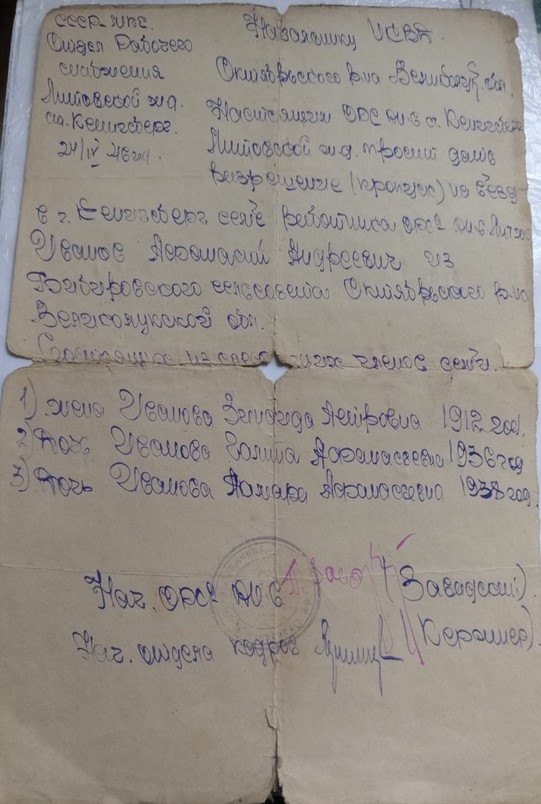 СССР-НПС
Отдел Рабочего
снабжения
Литовской ж.д.
ст. Кенигсберг.
24/IV 46 год.
Начальнику
Октябрьского р-на Великолук. обл.
Настоящим ОРС ст. Кенигсберг
Литовской ж.д. просит дать
разрешение (пропуск) на въезд
в г. Кенигсберг семье работника ОРСа
Иванов Афонасий Андреевич из
сельсовета Октябрьского р-на
Великолукской обл.
Состоящих из следующих членов семьи.
1) жена Иванова Зинаида Петровна 1912 год.
2) Дочь Иванова Галина Афонасьевна 1936 год
3) Дочь Иванова Тамара Афонасьевна 1938 год.
Нач. ОРСа (Завадский).
Нач. отдела кадров